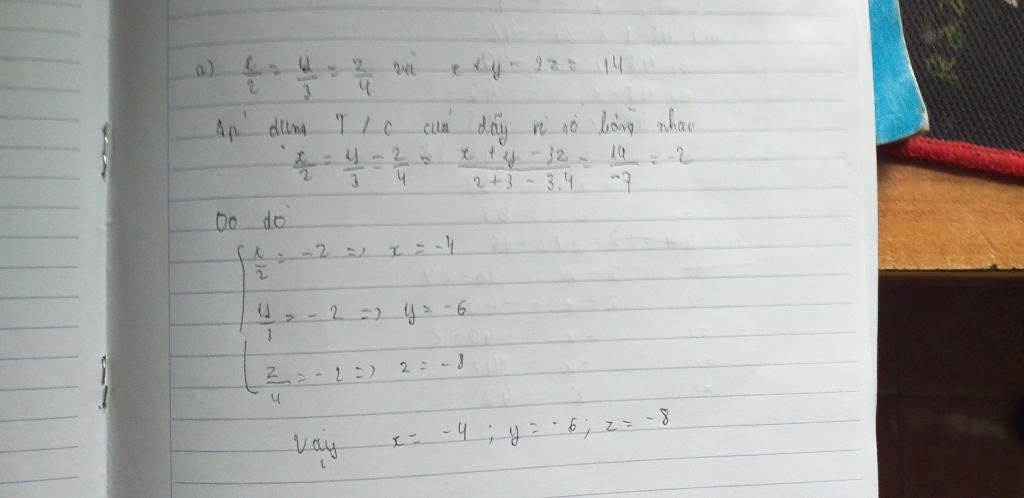 a) x/2 = y/3 = z/4 và x + y - 3z = 14
Áp dụng T/C của dãy tỉ số bằng nhau
x/2 = y/3 = z/4 = (x + y - 3z)/(2 + 3 - 3.4) = 14/-7 = -2
Do đó
x/2 = -2 => x = -4
y/3 = -2 => y = -6
z/4 = -2 => z = -8
Vậy x = -4 ; y = -6 ; z = -8